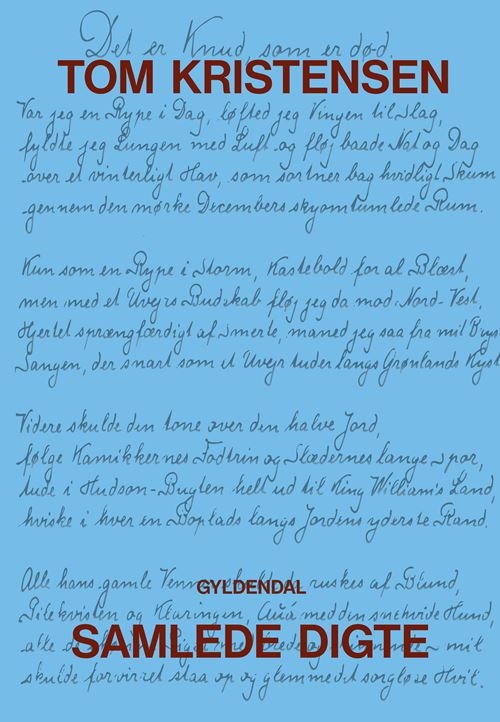 Det er Knud, som er død.
TOM KRISTENSEN
Var jeg en Rype i Dag, løfted jeg Vingen til Slag,
fyldte jeg Lungen med Luft og fløj baade Nat og Dag
over et vinterligt Hav, som sortner bag hvidligt Skum
gennem den mørke Decembers skyomtumlede Rum.
Kun som en Rype i Storm, Kastebold for al Blæst,
men med et Uvejrs Budskab fløj jeg da mod Nord-Vest,
Hjertet sprængfærdigt af Smerte, maned jeg saa fra mit Brys
Sangen, der snart som et Uvejr tuder langs Grønlands Kyst
Videre skulde den tone over den halve Jord,
følge Kamikkernes Fodtrin og Slædernes lange Spor,
tude i Hudson-Bugten helt ud til King William's Land
hviske i hver en Boplads langs Jordens yderste Rand.
Alle hans gamle Venner ruskes af Blund,
GYLDENDAL
Pilekvisten og Klaringen, Auá med den snehvide Hund,
SAMLEDE DIGTE
alle mit
skulde forvirret staa op og glemme det sorgløse Hvil.